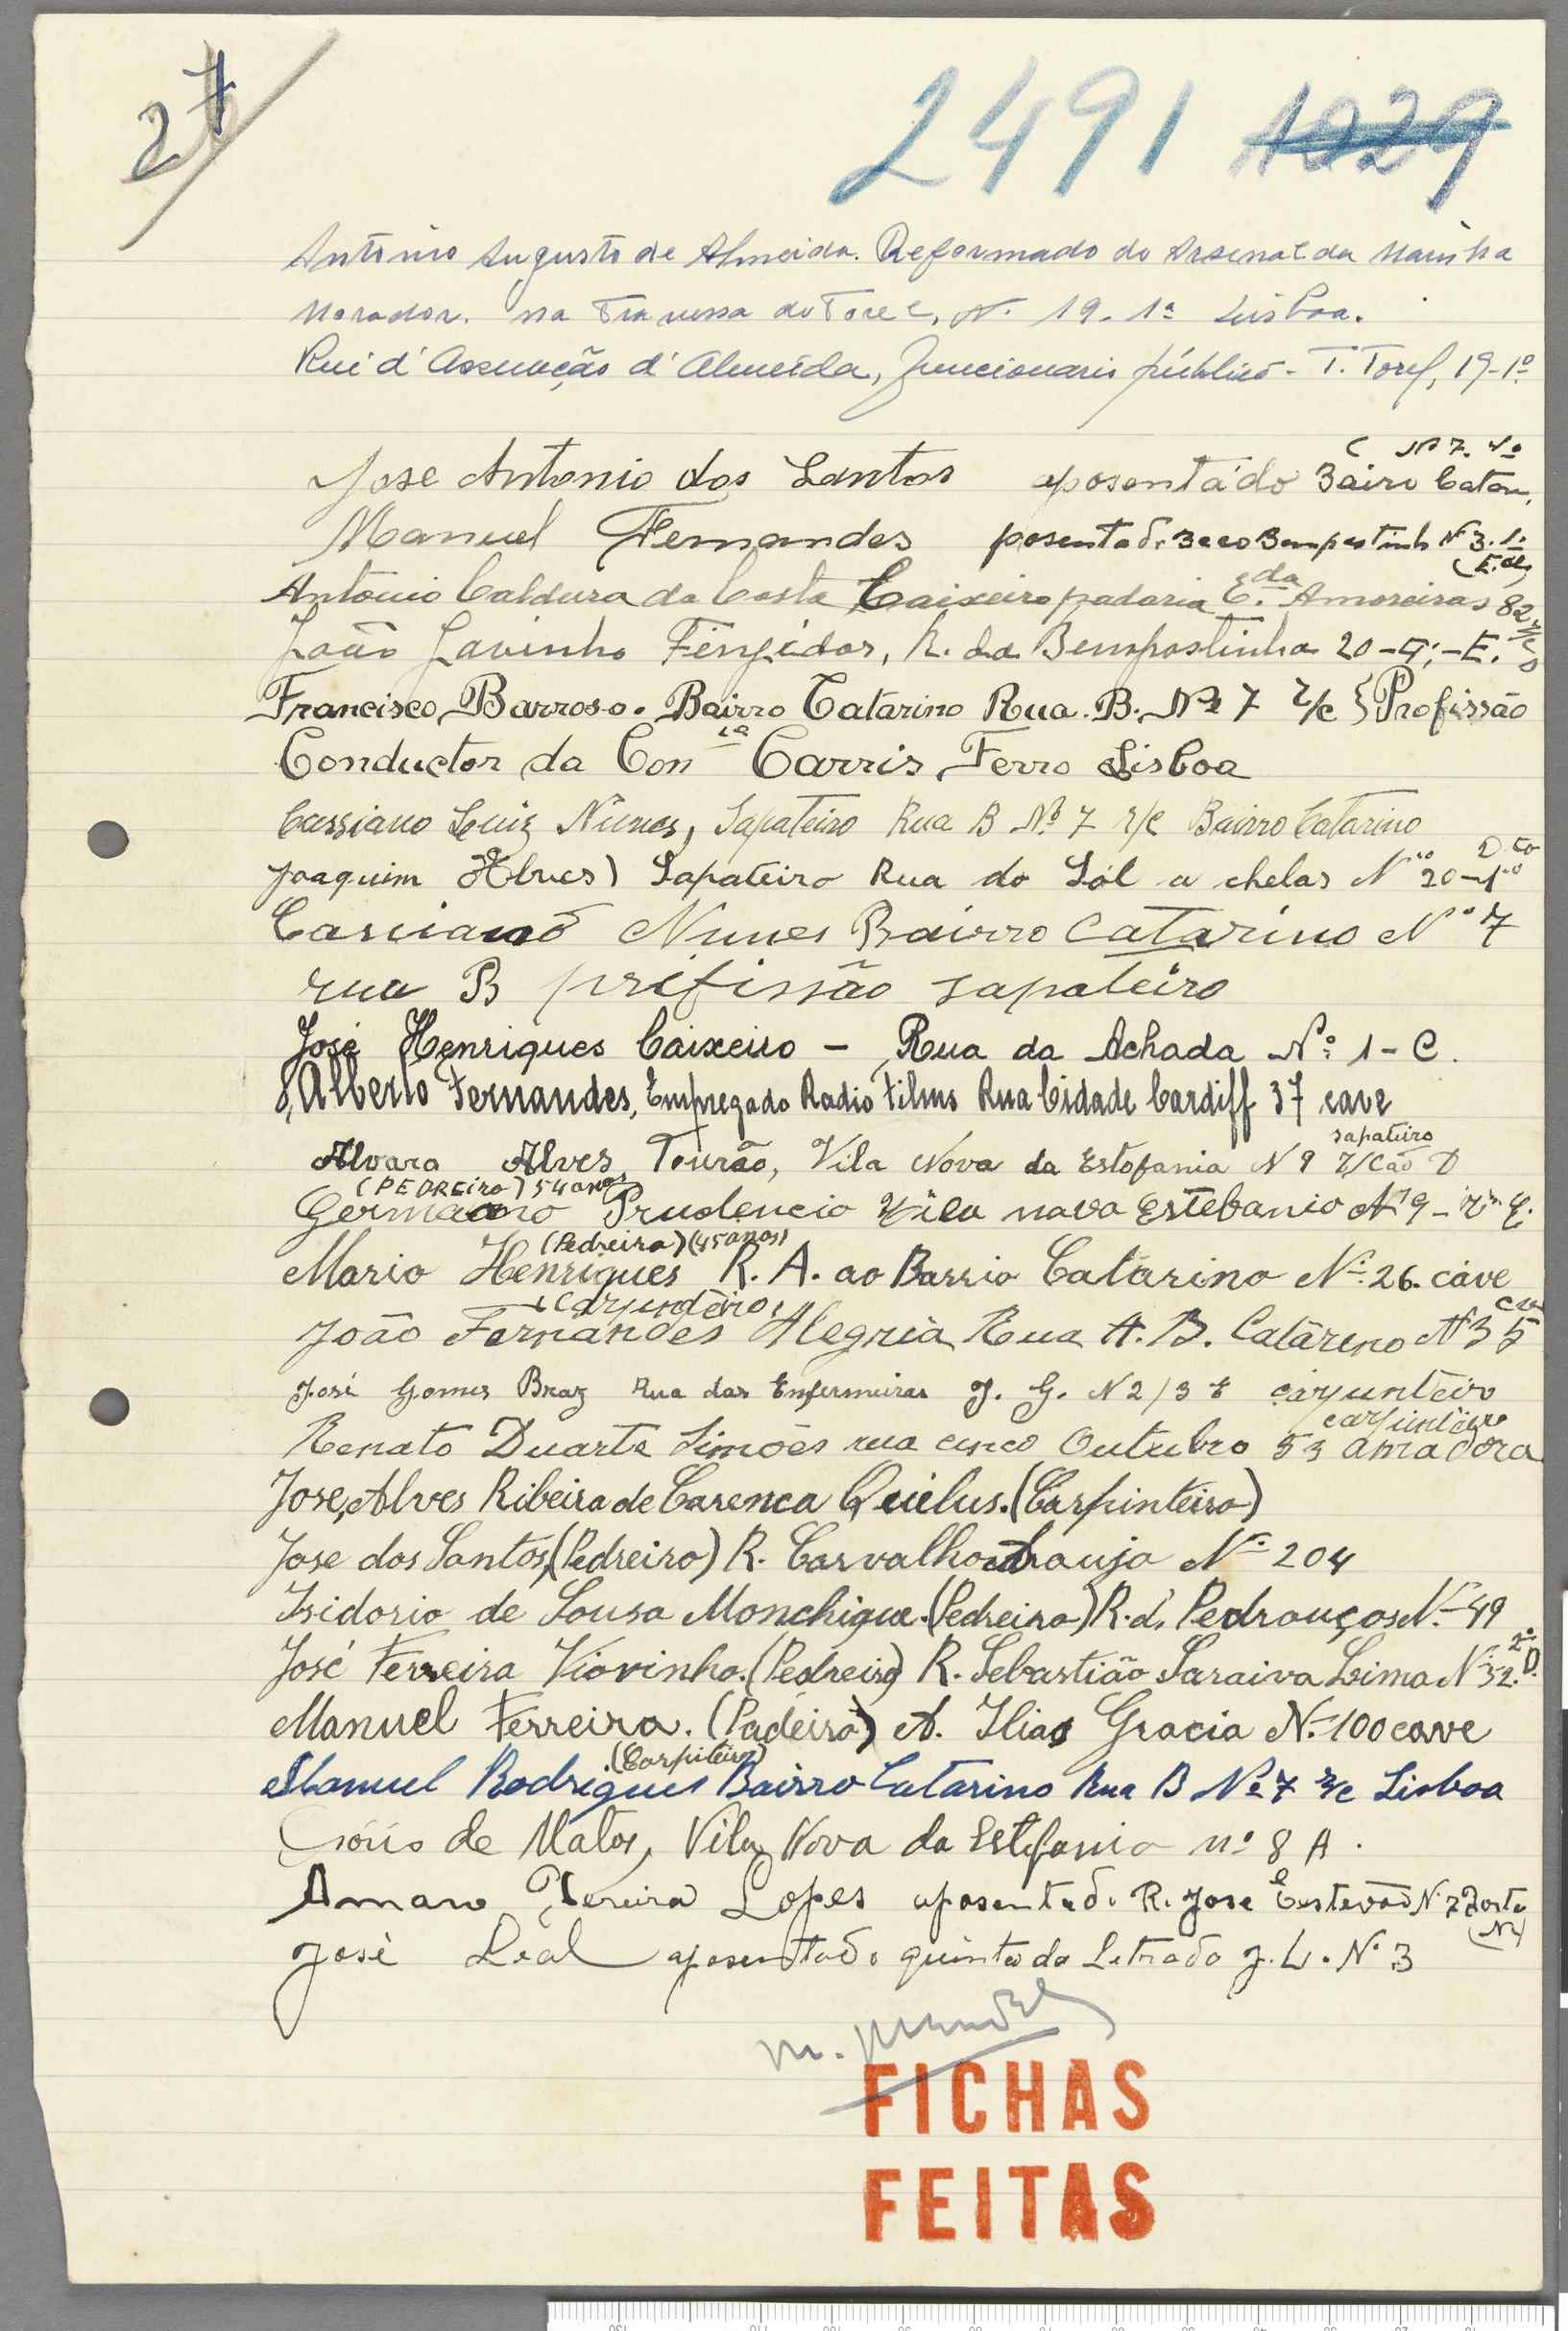 27
2491 1029
Antonio Augusto de Almeida. Reformado do Arsenal da Marinha
Morador. na Travessa do Torel, N. 19. 1º Lisboa.
Rui d'Assunção d'Almeida, funcionario público - T. Torel, 19-1º
( Nº 7. 4º
Jose Antonio dos Santos aposentádo Bairo Catar.
Manuel Fernandes posentado Beco Bempostinh Nº 3. 1.
Antonio Caldura da Costa Caixeiro padaria C.da Amoreiras 82 r/c
João Gavinho Fingidor, R. da Bempostinha 20-4º-E.
Francisco Barroso. Bairro Catarino Rua. B. Nº 7 r/c } Profissão
Conductor da Con ia Carris Ferro Lisboa
Cassiano Luiz Nunes, Sapateiro Rua B Nº 7 r/c Bairro Catarino
D.to
Joaquim Alves) Sapateiro Rua do Sól a chelas Nº 20-1º
Casciano Nunes Bairro Catarino Nº 7
rua B prifissão sapateiro
José Henriques Caixeiro - Rua da Achada Nº 1-C.
Alberto Fernandes, Empregado Radio Films Rua Cidade Cardiff 37 cave
sapateiro
Alvaro Alves Tourão, Vila Nova da Estofania N 9 r/cão D
(PEDREiro) 54 anos
Germano Prudencio Vila nova Estebanio Nº 9 - E.
(Pedreiro) (45 anos)
Mario Henriques R. A. ao Barrio Catarino Nº 26. cáve
carpinteiro
João Fernandes Alegria Rua A. B. Catareno Nº 35
José Gomes Braz Rua das Enfermeiras J. G. N 2/3 E carpunteiro
carpinteiro
Renato Duarte Simões rua cinco Outubro 53 amadora
Jose, Alves Ribeira de Carenca Queilus. (Carpinteiro)
Jose dos Santos, (Pedreiro) R. Carvalho Araujo Nº 204
Isidorio de Sousa Monchique. (Pedreiro) R. d. Pedrouços Nº 49
José Ferreira Viovinho. (Pedreiro) R. Sebastião Saraiva Lima Nº 52. 2º D.
Manuel Ferreira. (Padeiro) A. Ilias Gracia Nº 100 cave
(Carpiteiro)
Manuel Rodrigues Bairro Catarino Rua B Nº 7 r/c Lisboa
de Matos, Vila Nova da Estefania nº 8 A.
Amaro Pereira Lopes aposentado R. Jose Estevão Nº 7 Porta
José Leal aposentado quinta do Letrado J. L. Nº 3
M. Mendes
FICHAS
FEITAS